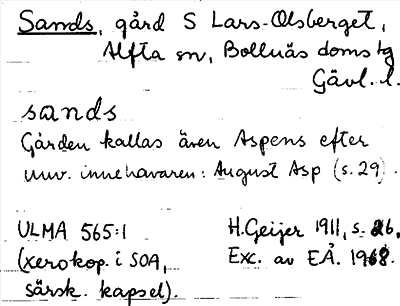 Sands, gård S Lars-Olsberget,
Alfta sn, Bollnäs doms tg
Gävl. l.
sands
Gården kallas även Aspens efter
nuv. innehavaren: August Asp (s. 29).
ULMA 565:1
(xerokop. i SOA,
särsk. kapsel).
H. Geijer 1911, s. 26,
Exc. av E.Å. 1968.